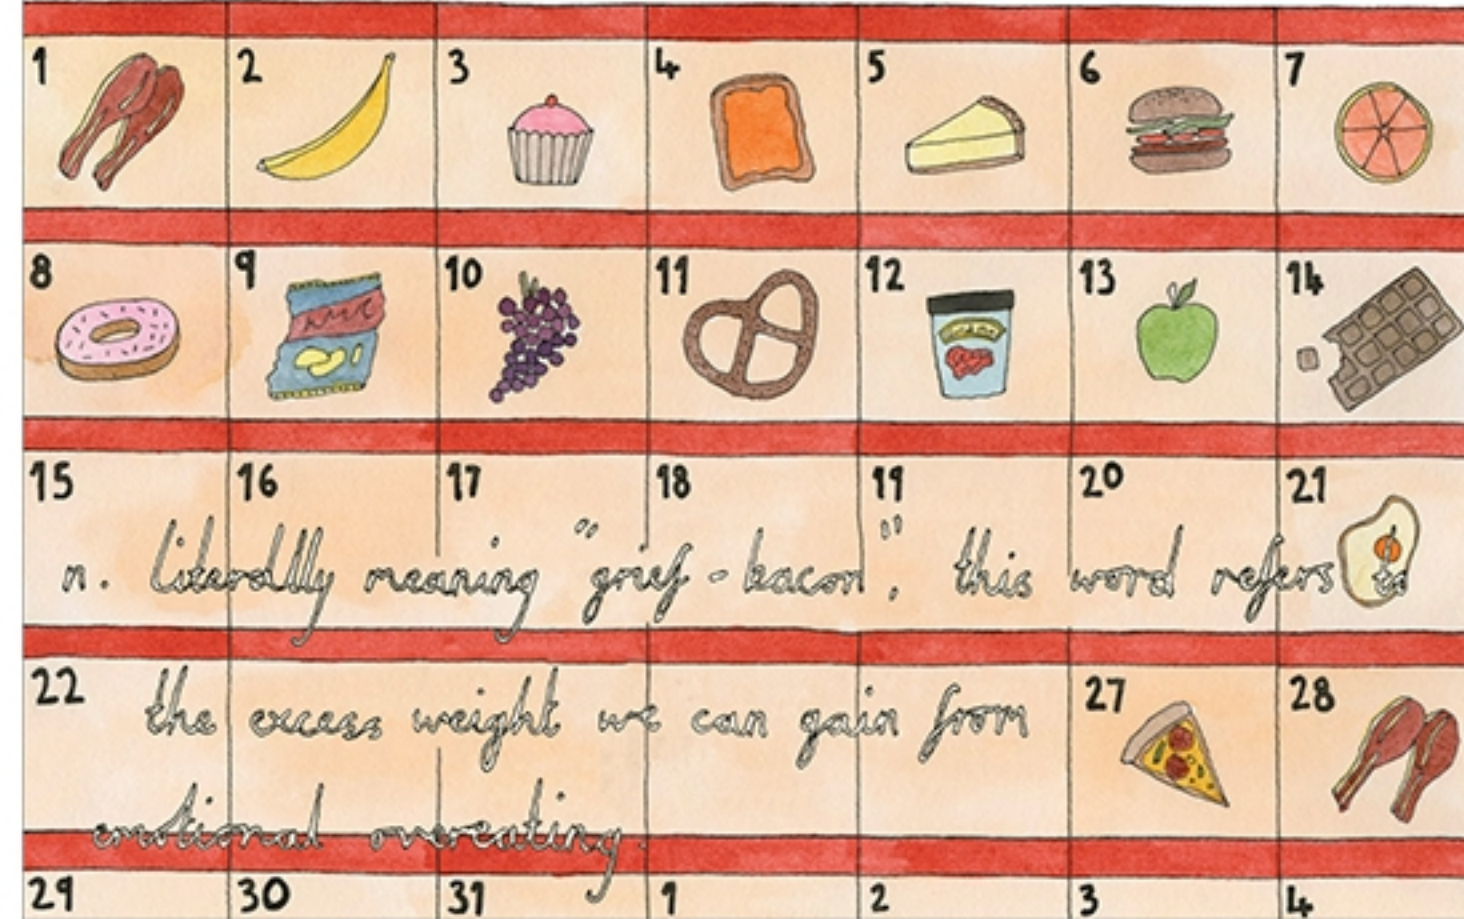 1 2 3 4 5 6 7
8 9 10 11 12 13 14
15 16 17 18 19 20 21
n. literally meaning "grief-bacon", this word refers to
22 27 28
the excess weight we can gain from
emotional overeating.
29 30 31 1 2 3 4